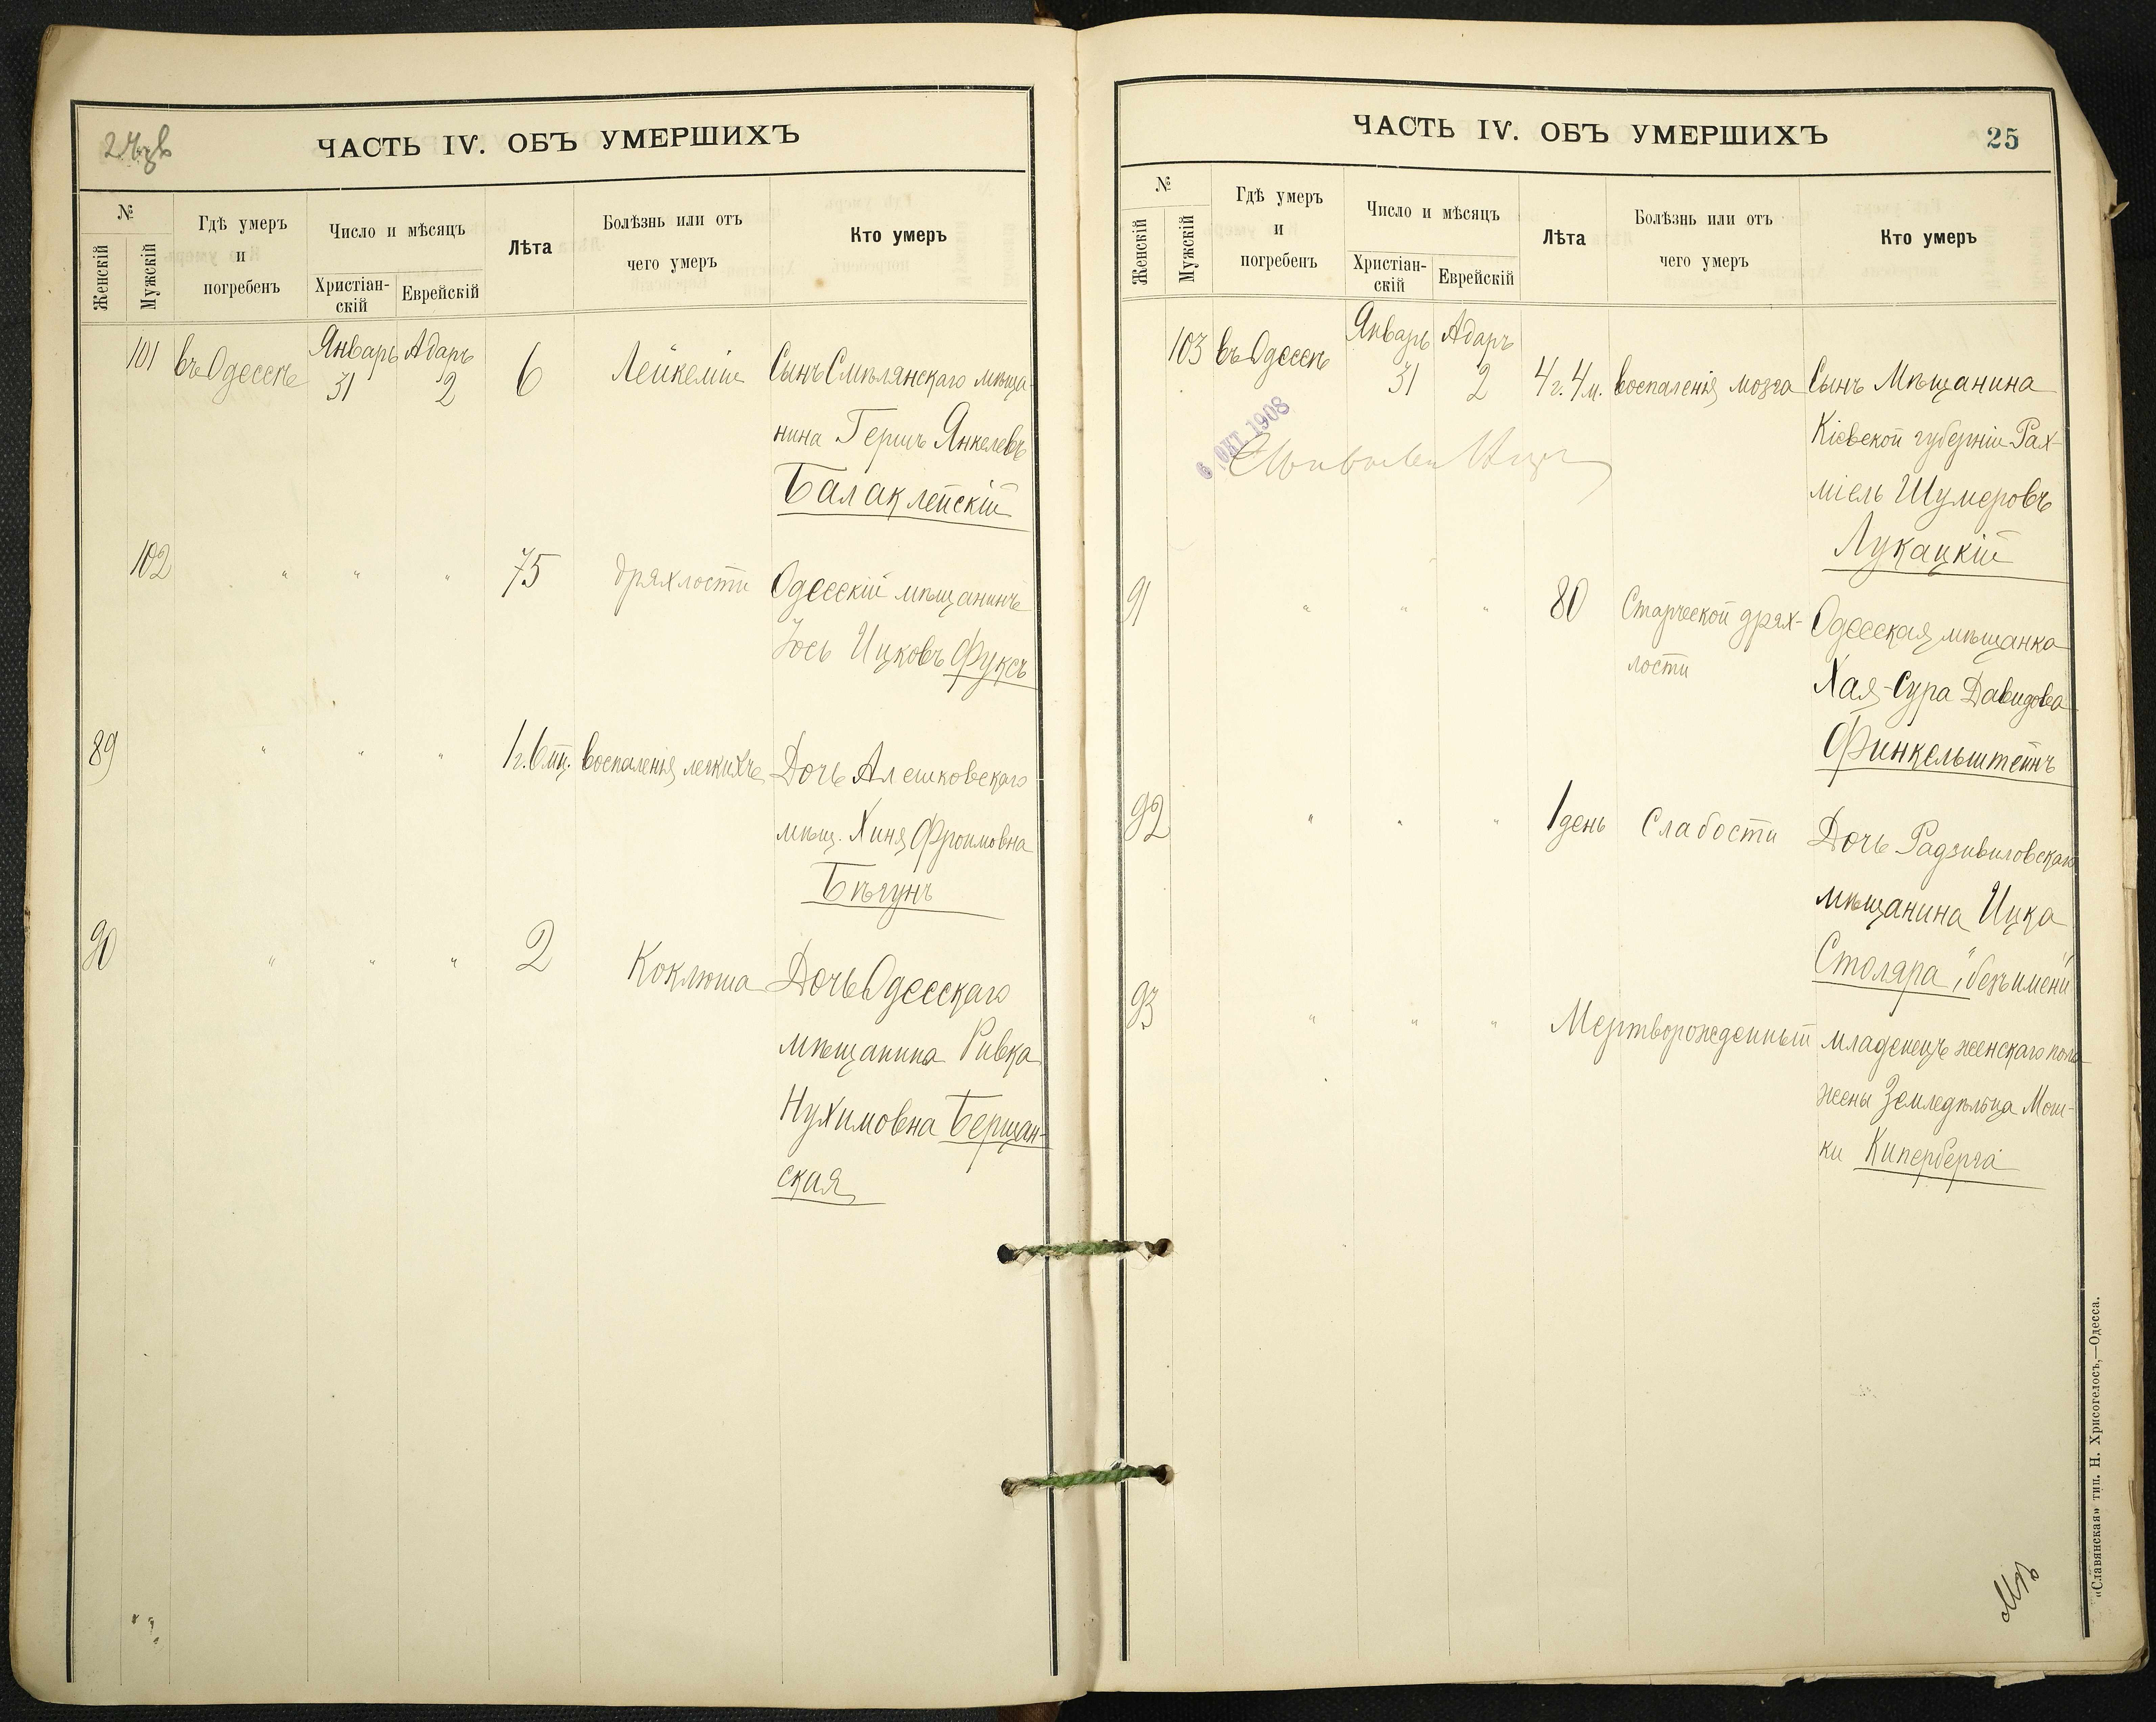 ЧАСТЬ IV. ОБЪ УМЕРШИХЪ
№
Женскій
Мужскій
Гдѣ умеръ
и
погребенъ
Число и мѣсяцъ
Христіан-
скій
Еврейскій
Лѣта
Болѣзнь или отъ
чего умеръ
Кто умеръ
101 въ Одессѣ Январь 31 Адаръ 2 6 Лейкеміи Сынъ Смѣлянскаго мѣща-
нина Гершъ Янкелевъ
Балаклейскій
102 " " " 75 дряхлости Одесскій мѣщанинъ
Іось Ицковъ Фуксъ
89 " " " 1 г. 6 мц. воспаленія легкихъ Дочь Алешковскаго
мѣщ. Хиня Фроимовна
Бѣгунъ
90 " " " 2 Коклюша Дочь Одесскаго
мѣщанина Ривка
Нухимовна Бершан-
ская
ЧАСТЬ IV. ОБЪ УМЕРШИХЪ
25
№
Женскій
Мужскій
Гдѣ умеръ
и
погребенъ
Число и мѣсяцъ
Христіан-
скій
Еврейскій
Лѣта
Болѣзнь или отъ
чего умеръ
Кто умеръ
103 въ Одессѣ Январь 31 Адаръ 2 4 г. 4 м. воспаленія мозга Сынъ Мѣщанина
Кіевской губерніи Рах-
міель Шумеровъ
Лукацкій
6 ОКТ 1908
91 " " " 80 Старческой дрях- Одесская мѣщанка
лости Хая-Сура Давидова
Финкельштейнъ
92 " " " 1 день Слабости Дочь Радзивиловскаго
мѣщанина Ицка
Столяра "безъ имени"
93 " " " Мертворожденный младенецъ женскаго пола
жены Земледѣльца Мош-
ки Киперберга
«Славянская» тип. Н. Хрисогелосъ,—Одесса.